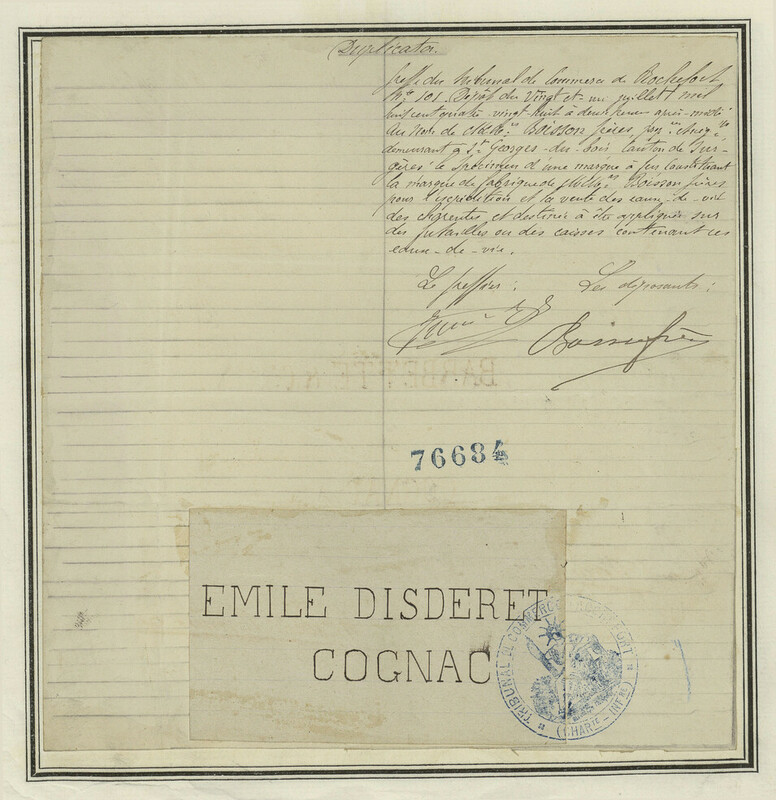 Duplicata.
Greffe du tribunal de Commerce de Rochefort
N° 101. Dépôt du Vingt et un juillet mil
huit cent quatre vingt huit à deux heures après-midi
Au Nom de Boisson frères
demeurant à St Georges-du-bois Canton de Sur-
gères: le Spécimen d'une marque à feu Constituant
la marque de fabrique de Boisson frères
pour l'expédition et la vente des eaux-de-vie
des charentes, et destinée à être appliquée sur
des futailles ou des caisses contenant ces
eaux-de-vie.
Le greffier: Les déposants:
Boisson frères
BARBET
76684
EMILE DISDERET
COGNAC
TRIBUNAL DE COMMERCE ROCHEFORT
(CHARTE-INFRE)